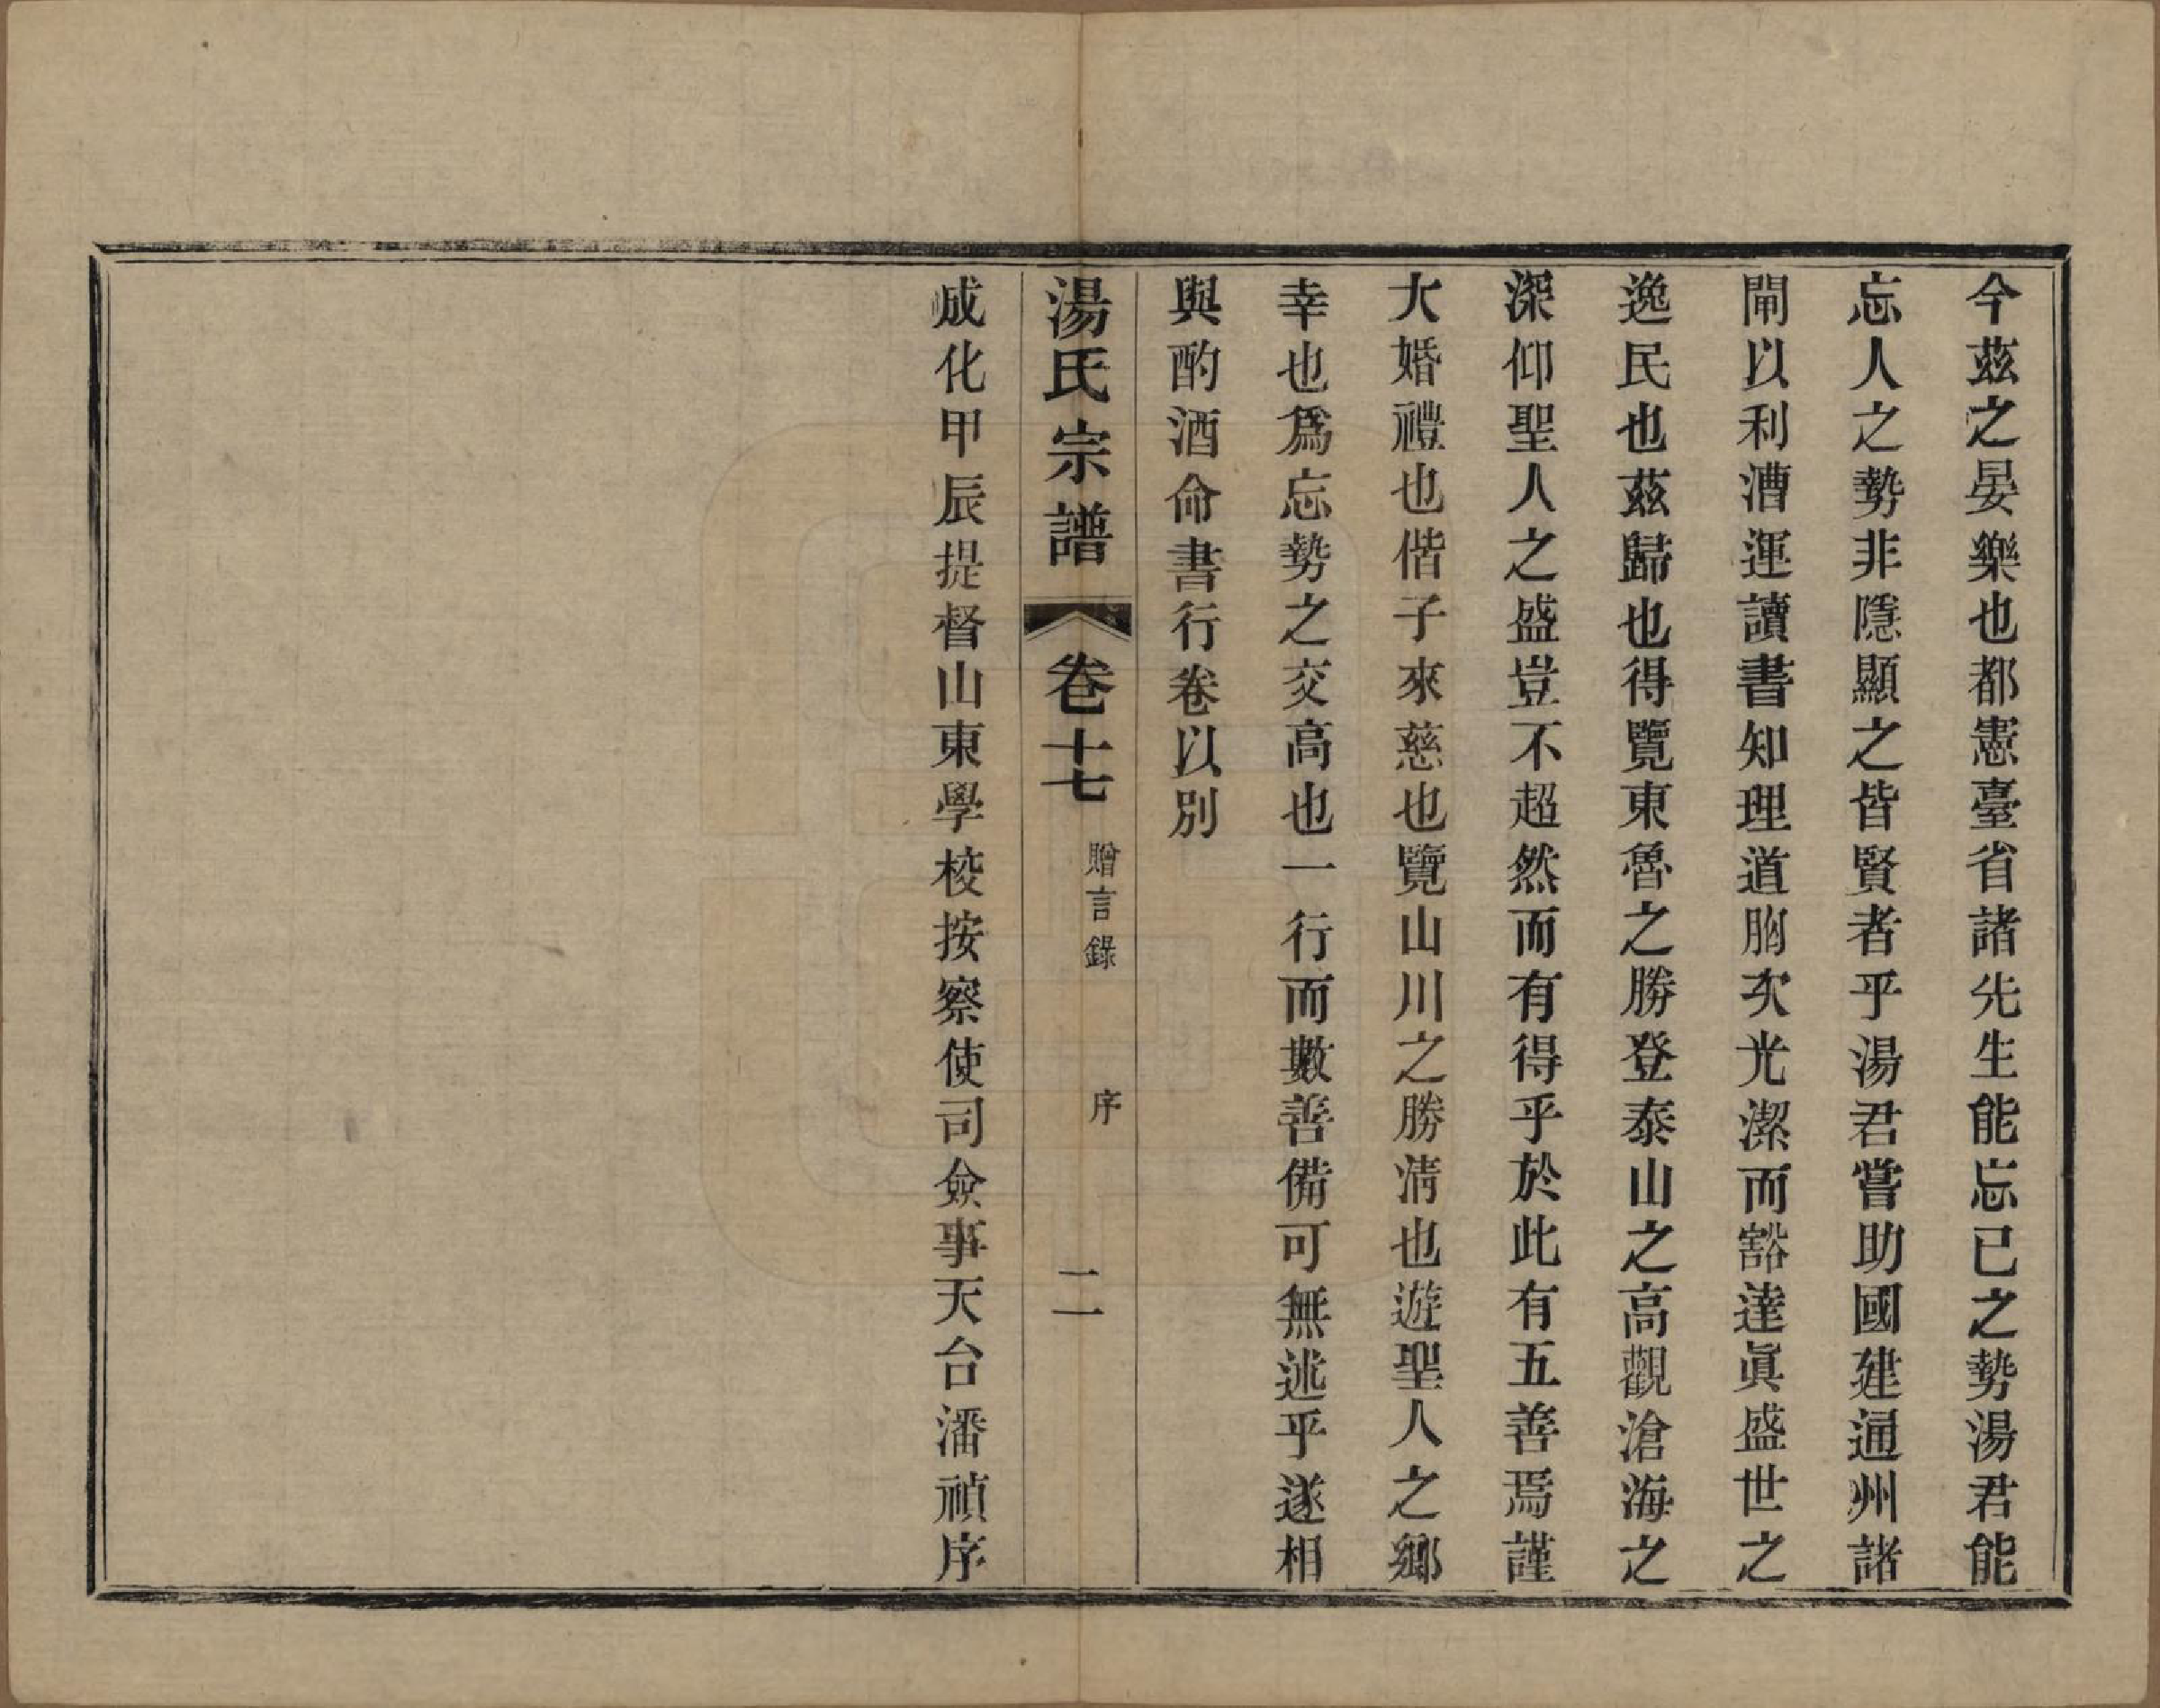 今茲之晏樂也都憲臺省諸先生能忘已之勢湯君能
忘人之勢非隱顯之皆賢者乎湯君嘗助國建通州諸
閘以利漕運讀書知理道胸次光潔而豁達眞盛世之
逸民也茲歸也得覽東魯之勝登泰山之高觀滄海之
深仰聖人之盛豈不超然而有得乎於此有五善焉謹
大婚禮也偕子來慈也覽山川之勝淸也遊聖人之鄉
幸也爲忘勢之交高也一行而數善備可無述乎遂相
與酌酒命書行卷以別
湯氏宗譜 卷十七 贈言錄 序 二
成化甲辰提督山東學校按察使司僉事天台潘禎序